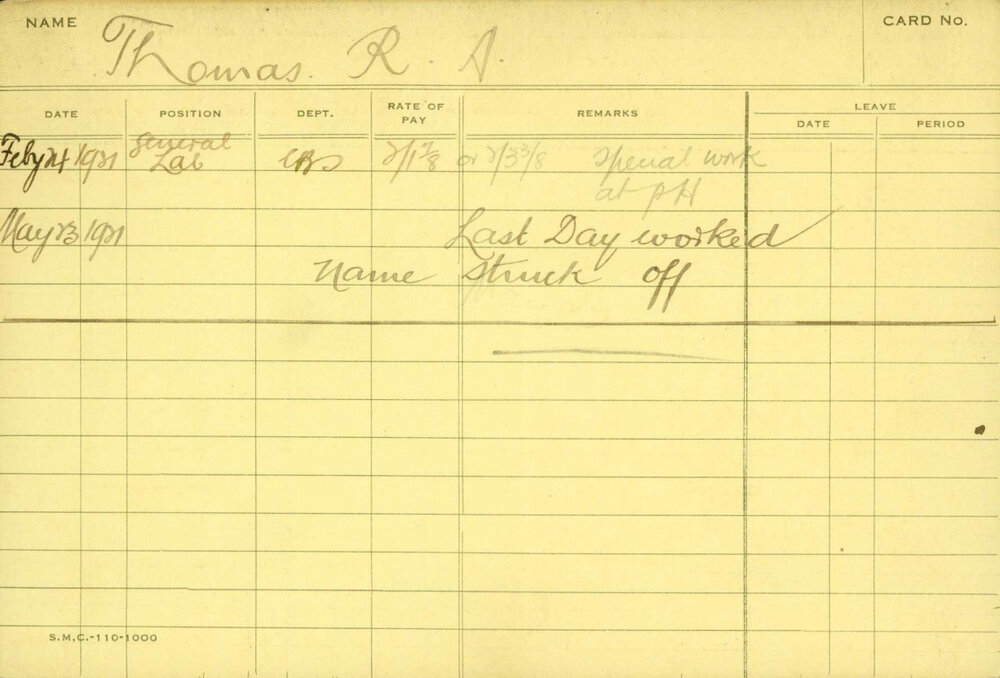 NAME Thomas. R. A. CARD No.
DATE POSITION DEPT. RATE OF PAY REMARKS LEAVE
DATE PERIOD
Feby 24 1921 General Lab 2/1 7/8 or 2/3 3/8 Special work
at PH
May 23 1921 Last Day worked
Name Struck off
S.M.C.-110-1000